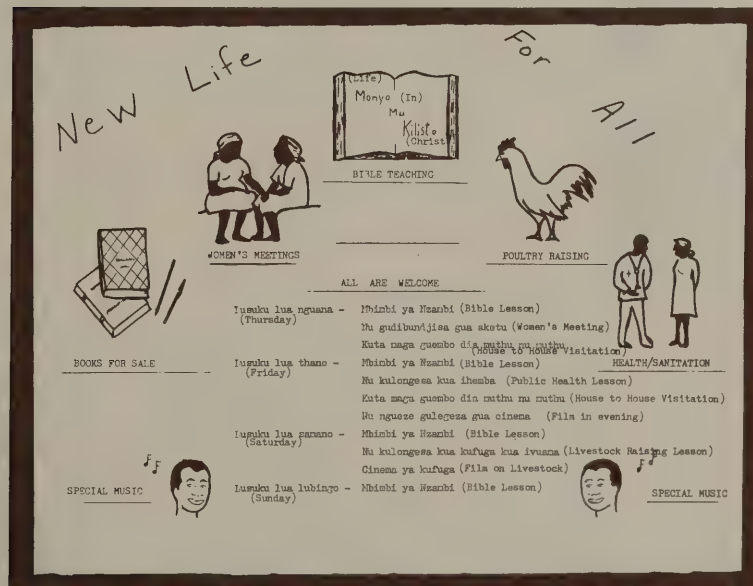 New Life For All
(Life)
Monyo (In)
Mu
Kilisto
(Christ
BIBLE TEACHING
WOMEN'S MEETINGS
POULTRY RAISING
ALL ARE WELCOME
BOOKS FOR SALE
HEALTH/SANITATION
Lusuku lua nguana - Mbimbi ya Nzambi (Bible Lesson)
(Thursday)
Nu gudibundjisa gua aketu (Women's Meeting)
Kuta maga guembo dia muthu nu muthu
(House to House Visitation)
Lusuku lua thano - Mbimbi ya Nzambi (Bible Lesson)
(Friday)
Nu kulongesa kua ihemba (Public Health Lesson)
Kuta maga guembo dia muthu nu muthu (House to House Visitation)
Nu ngueze gulegeza gua cinema (Film in evening)
Lusuku lua samano - Mbimbi ya Nzambi (Bible Lesson)
(Saturday)
Nu kulongesa kua kufuga kua ivuana (Livestock Raising Lesson)
Cinema ya kufuga (Film on Livestock)
Lusuku lua lubingo - Mbimbi ya Nzambi (Bible Lesson)
(Sunday)
SPECIAL MUSIC
SPECIAL MUSIC